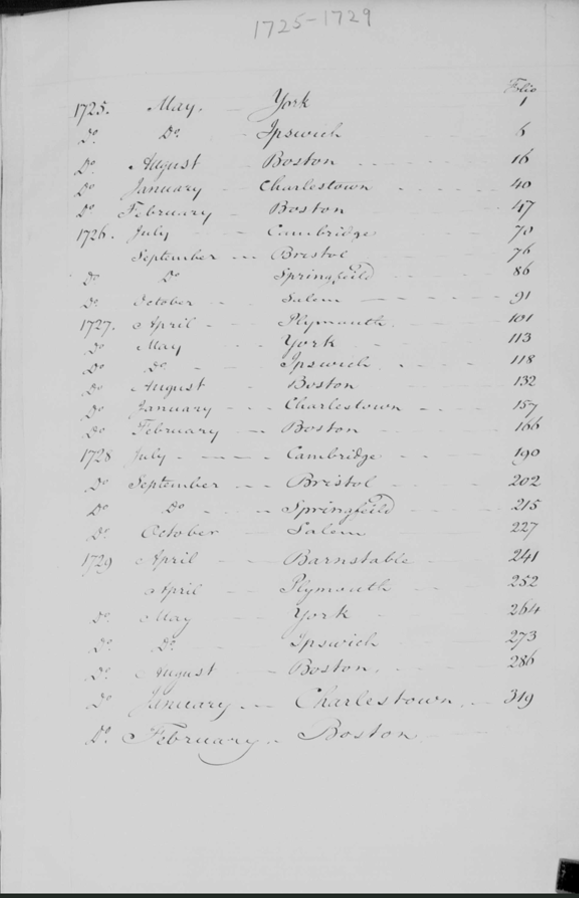 1725-1729
Folio
1725. May. York 1
Do. Do. Ipswich 6
Do. August Boston 16
Do January Charlestown 40
Do February Boston 47
1726. July Cambridge 70
September Bristol 76
Do Do Springfeild 86
Do October Salem 91
1727. April Plymouth 101
Do May York 113
Do Do Ipswich 118
Do August Boston 132
Do January Charlestown 157
Do February Boston 166
1728 July Cambridge 190
Do September Bristol 202
Do Do Springfeild 215
Do October Salem 227
1729 April Barnstable 241
April Plymouth 252
Do. May York 264
Do. Do. Ipswich 273
Do. August Boston. 286
Do January Charlestown 319
Do. February Boston